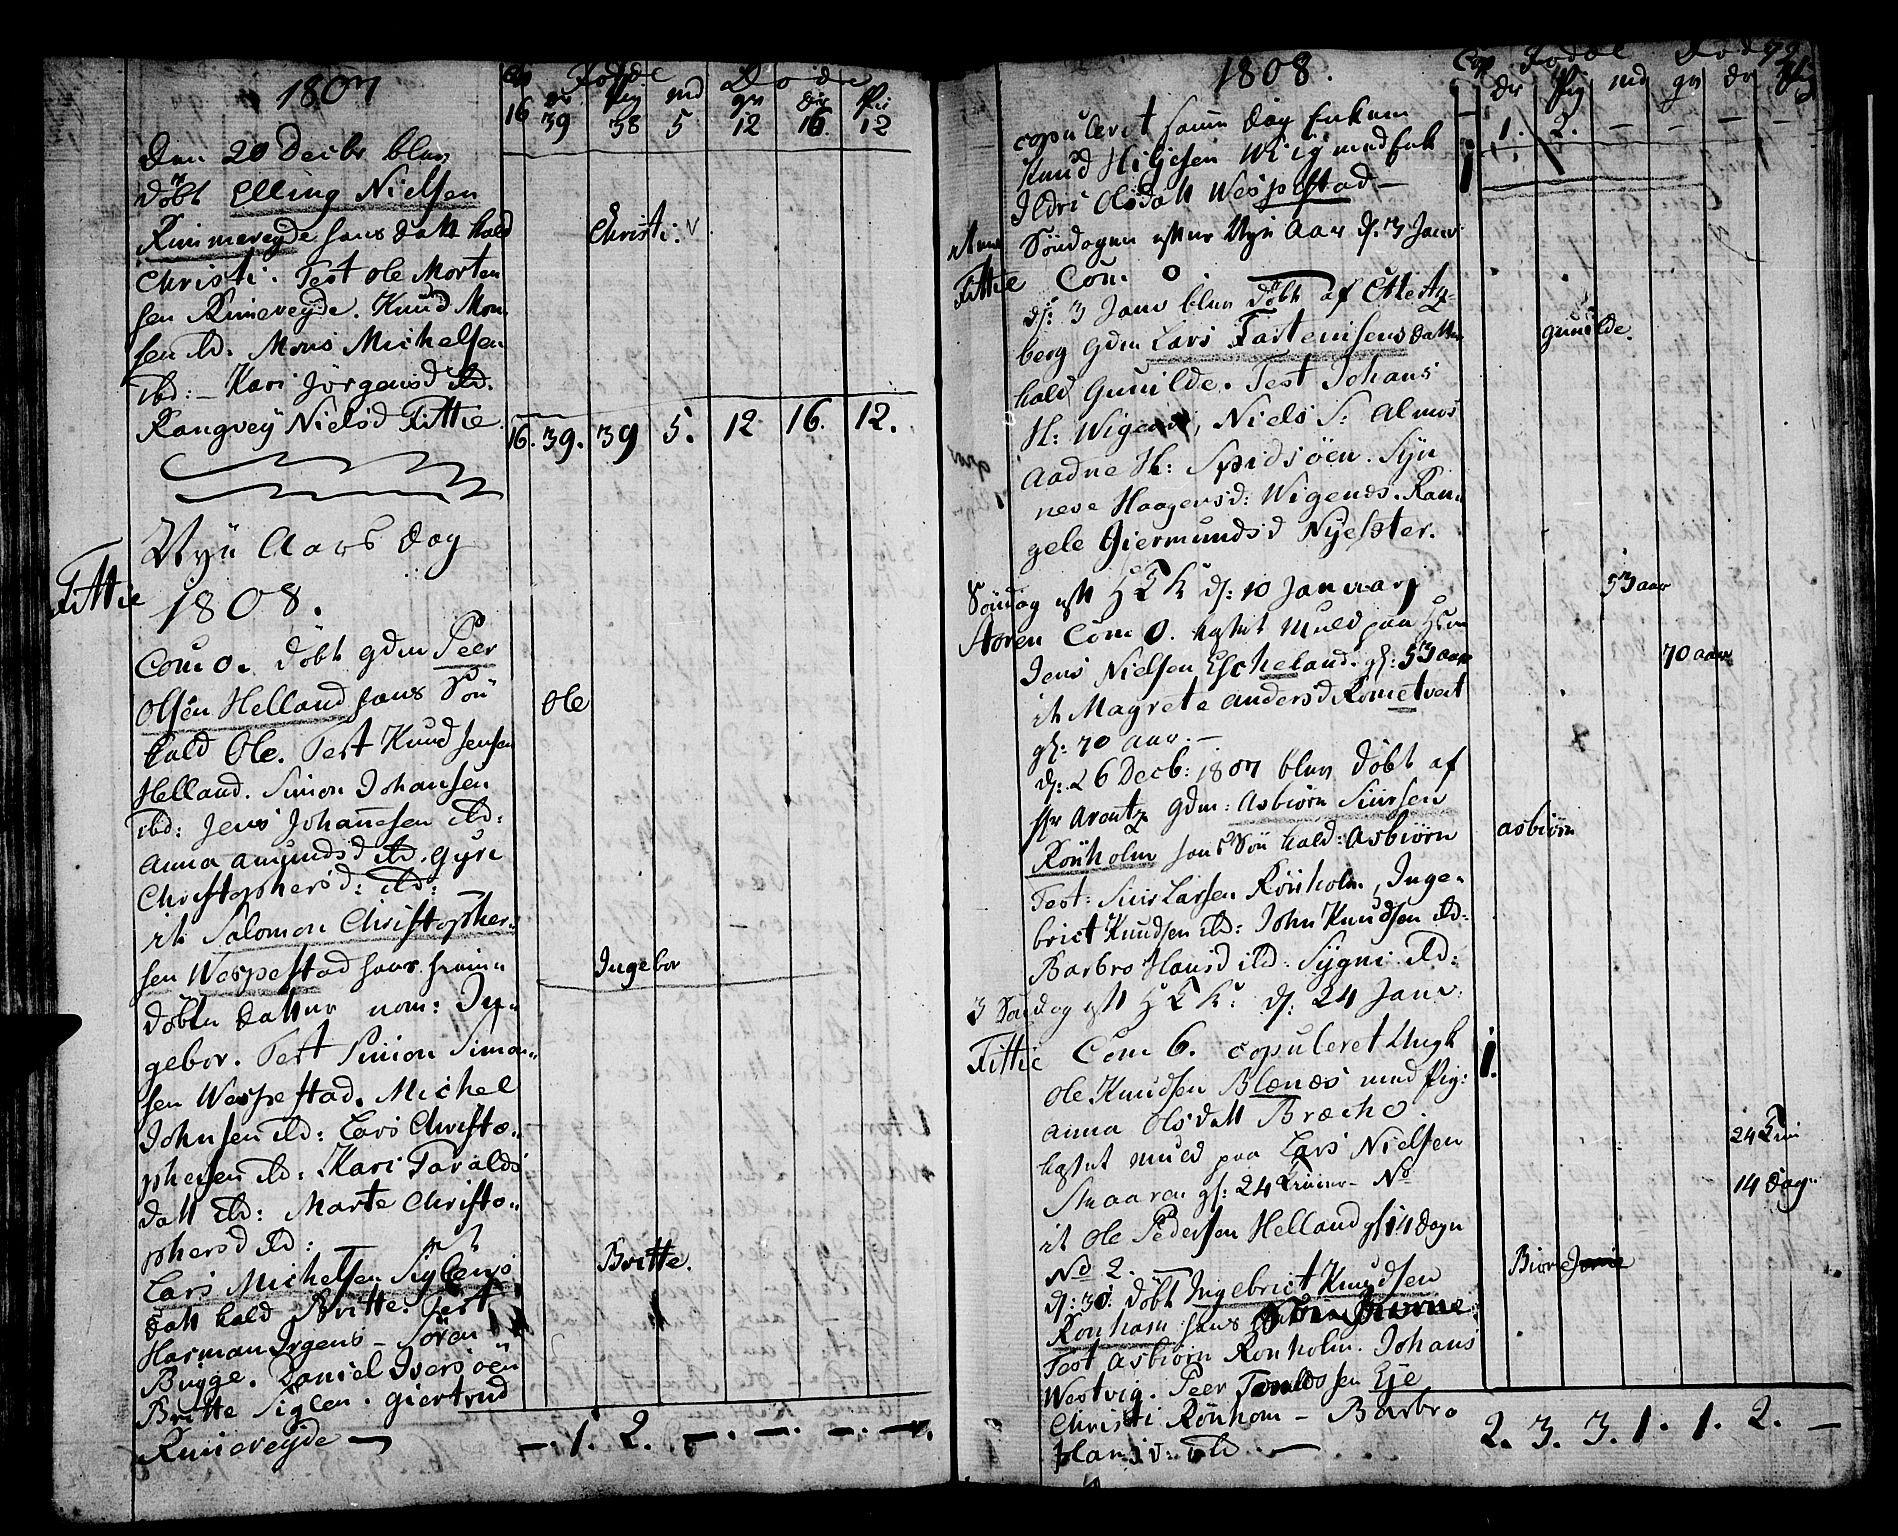 1807
Cop Fødde Døde
dr Pig md qv dr Pi
16 39 38 5 12 16 12
Den 20 Decbr blev
døbt Elling Nielsen
Rimmereyde hans datt kald
Christi: Christi. Test Ole Morten
sen Rimereyde. Knud Mon
sen ibd. Mons Michelsen
ibd: – Kari Jørgensd ibd.
Rangvey Nielsd Fittie.
16. 39. 39 5. 12 16. 12.
Nyt Aars Dag
Fittie 1808.
Com 0. døbt gdm Peer
Olsen Helland hans Søn Ole
kald Ole. Test Knud Jensen
Helland. Simon Johansen
ibd: Jens Johannesen ibd:
Anna Amundsd ibd. Gyri
Christophersd: ibd:
it Salomon Christopher-
sen Wespestad hans hiem Ingebor
døbte datter nom: In-
gebor. Test Simon Simon-
sen Wespestad. Michel
Johnsen ibd: Lars Christo-
phersen ibd: Kari Taralds
datt ibd: Marte Christo-
phersd ibd:
Lars Michelsen Siglens Britte.
datt kald Britte. Test
Harman Irgens – Søren
Bugge. Daniel Iversøen
Britte Siglen. Giertrud
Rimereyde –
–. 1. 2. –. –. –. –.
1808.
Cop Fødde Døde
dr Pig md qv dr
1. 2. – – – –
copuleret samme dag Enkem
Knud Hiljesen Wiig med Enk
Ildri Olsdatt Wespestad –
Søndagen efter Nyt Aar d. 3 Janv
Fittie Com 0.
d: 3 Janv blev døbt af
berg gdm Lars Tarteinsens datter gunilde.
kald Gunilde. Test Johans
H: Wigenes, Niels S: Almos
Aadne H: Spidsøen. Syn
neve Haagensd: Wigenes. Ran-
gele Giermundsd Nyester.
Søndag eftr H 3 K d: 10 Januarj 53 aar
Storen Com 0. kastet Muld paa
Jens Nielsen Escheland. gl: 53 aar 70 aar
it Magrete Andersd Rometveit
gl: 70 aar. –
d: 26 Decb: 1807 blev døbt af
Hr Arentz gdm: Asbiørn Siursen
Rønholm hans Søn kald: Asbiørn asbiørn
Test: Siur Larsen Rønholm, Inge-
brict Knudsen ibd: John Knudsen ibd:
Barbro Hansd ibd: Sygni ibd:
3 Søndag eftr H 3 K: d: 24 Janv:
Fittie Com 6. copuleret Ungk 1.
Ole Knudsen Blænæs med Pig:
Anna Olsdatt Bræcke.
kastet muld paa Lars Nielsen 24
gl: 24 – No
it Ole Pedersen Helland gl 14 dage 14 dag
No 2.
d: 30. døbt Ingebrict Knudsen
Ronholm hans
Test Asbiørn Ronholm. Johans
Westvig. Peer Taraldssen Eje
Christi Rønhom – Barbro
Hansd: ibd –
2. 3. 3. 1. 1. 2. –